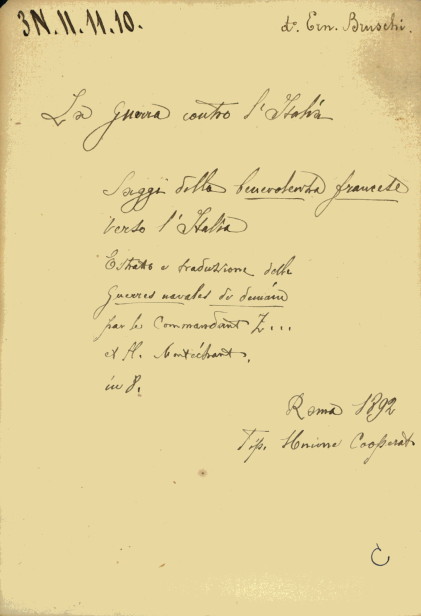 3N.11.11.10.
d.º Ern. Bruschi.
La guerra contro l'Italia
Saggi della benevolenza francese
verso l'Italia
Estratto e traduzione delle
Guerres navales de demain
par le Commandant Z...
et H. Montéchant.
in 8.
Roma 1892
Tip. Unione Cooperat.
C